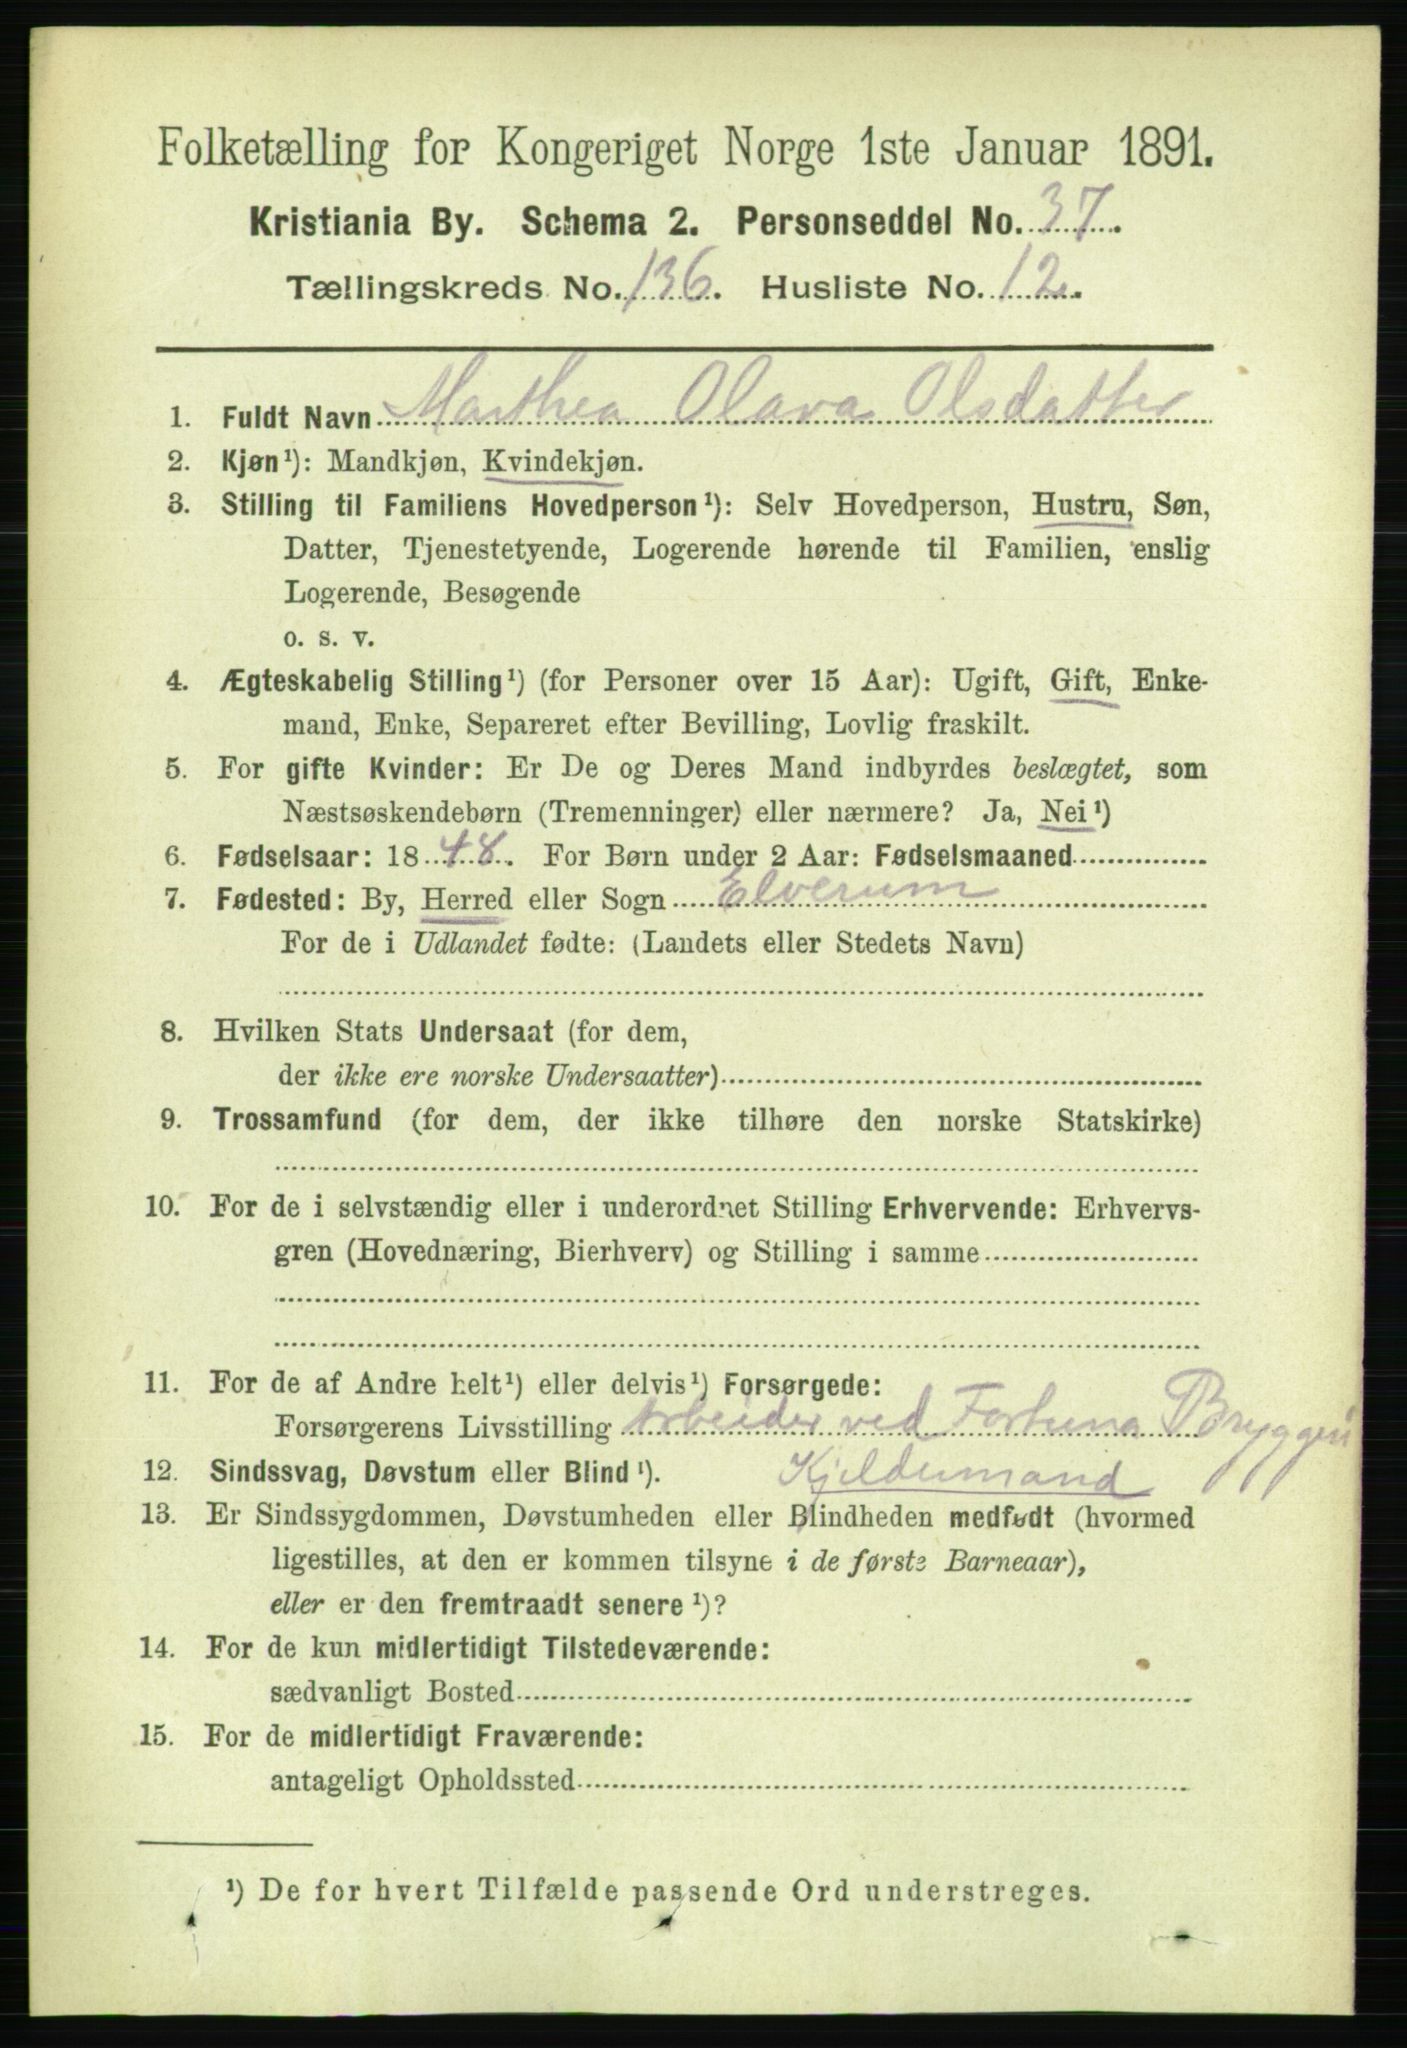 Folketælling for Kongeriget Norge 1ste Januar 1891.
Kristiania By. Schema 2. Personseddel No. 37.
Tællingskreds No. 136. Husliste No. 12.
1. Fuldt Navn Marthea Olava Olsdatter
2. Kjøn¹): Mandkjøn, Kvindekjøn.
3. Stilling til Familiens Hovedperson¹): Selv Hovedperson, Hustru, Søn,
Datter, Tjenestetyende, Logerende hørende til Familien, enslig
Logerende, Besøgende
o. s. v.
4. Ægteskabelig Stilling¹) (for Personer over 15 Aar): Ugift, Gift, Enke-
mand, Enke, Separeret efter Bevilling, Lovlig fraskilt.
5. For gifte Kvinder: Er De og Deres Mand indbyrdes beslægtet, som
Næstsøskendebørn (Tremenninger) eller nærmere? Ja, Nei¹)
6. Fødselsaar: 1848. For Børn under 2 Aar: Fødselsmaaned
7. Fødested: By, Herred eller Sogn Elverum
For de i Udlandet fødte: (Landets eller Stedets Navn)
8. Hvilken Stats Undersaat (for dem,
der ikke ere norske Undersaatter)
9. Trossamfund (for dem, der ikke tilhøre den norske Statskirke)
10. For de i selvstændig eller i underordnet Stilling Erhvervende: Erhvervs-
gren (Hovednæring, Bierhverv) og Stilling i samme
11. For de af Andre helt¹) eller delvis¹) Forsørgede:
Forsørgerens Livsstilling Arbeider ved Fortuna Bryggeri
12. Sindssvag, Døvstum eller Blind¹). Kjeldermand
13. Er Sindssygdommen, Døvstumheden eller Blindheden medfødt (hvormed
ligestilles, at den er kommen tilsyne i de første Barneaar),
eller er den fremtraadt senere¹)?
14. For de kun midlertidigt Tilstedeværende:
sædvanligt Bosted
15. For de midlertidigt Fraværende:
antageligt Opholdssted
¹) De for hvert Tilfælde passende Ord understreges.